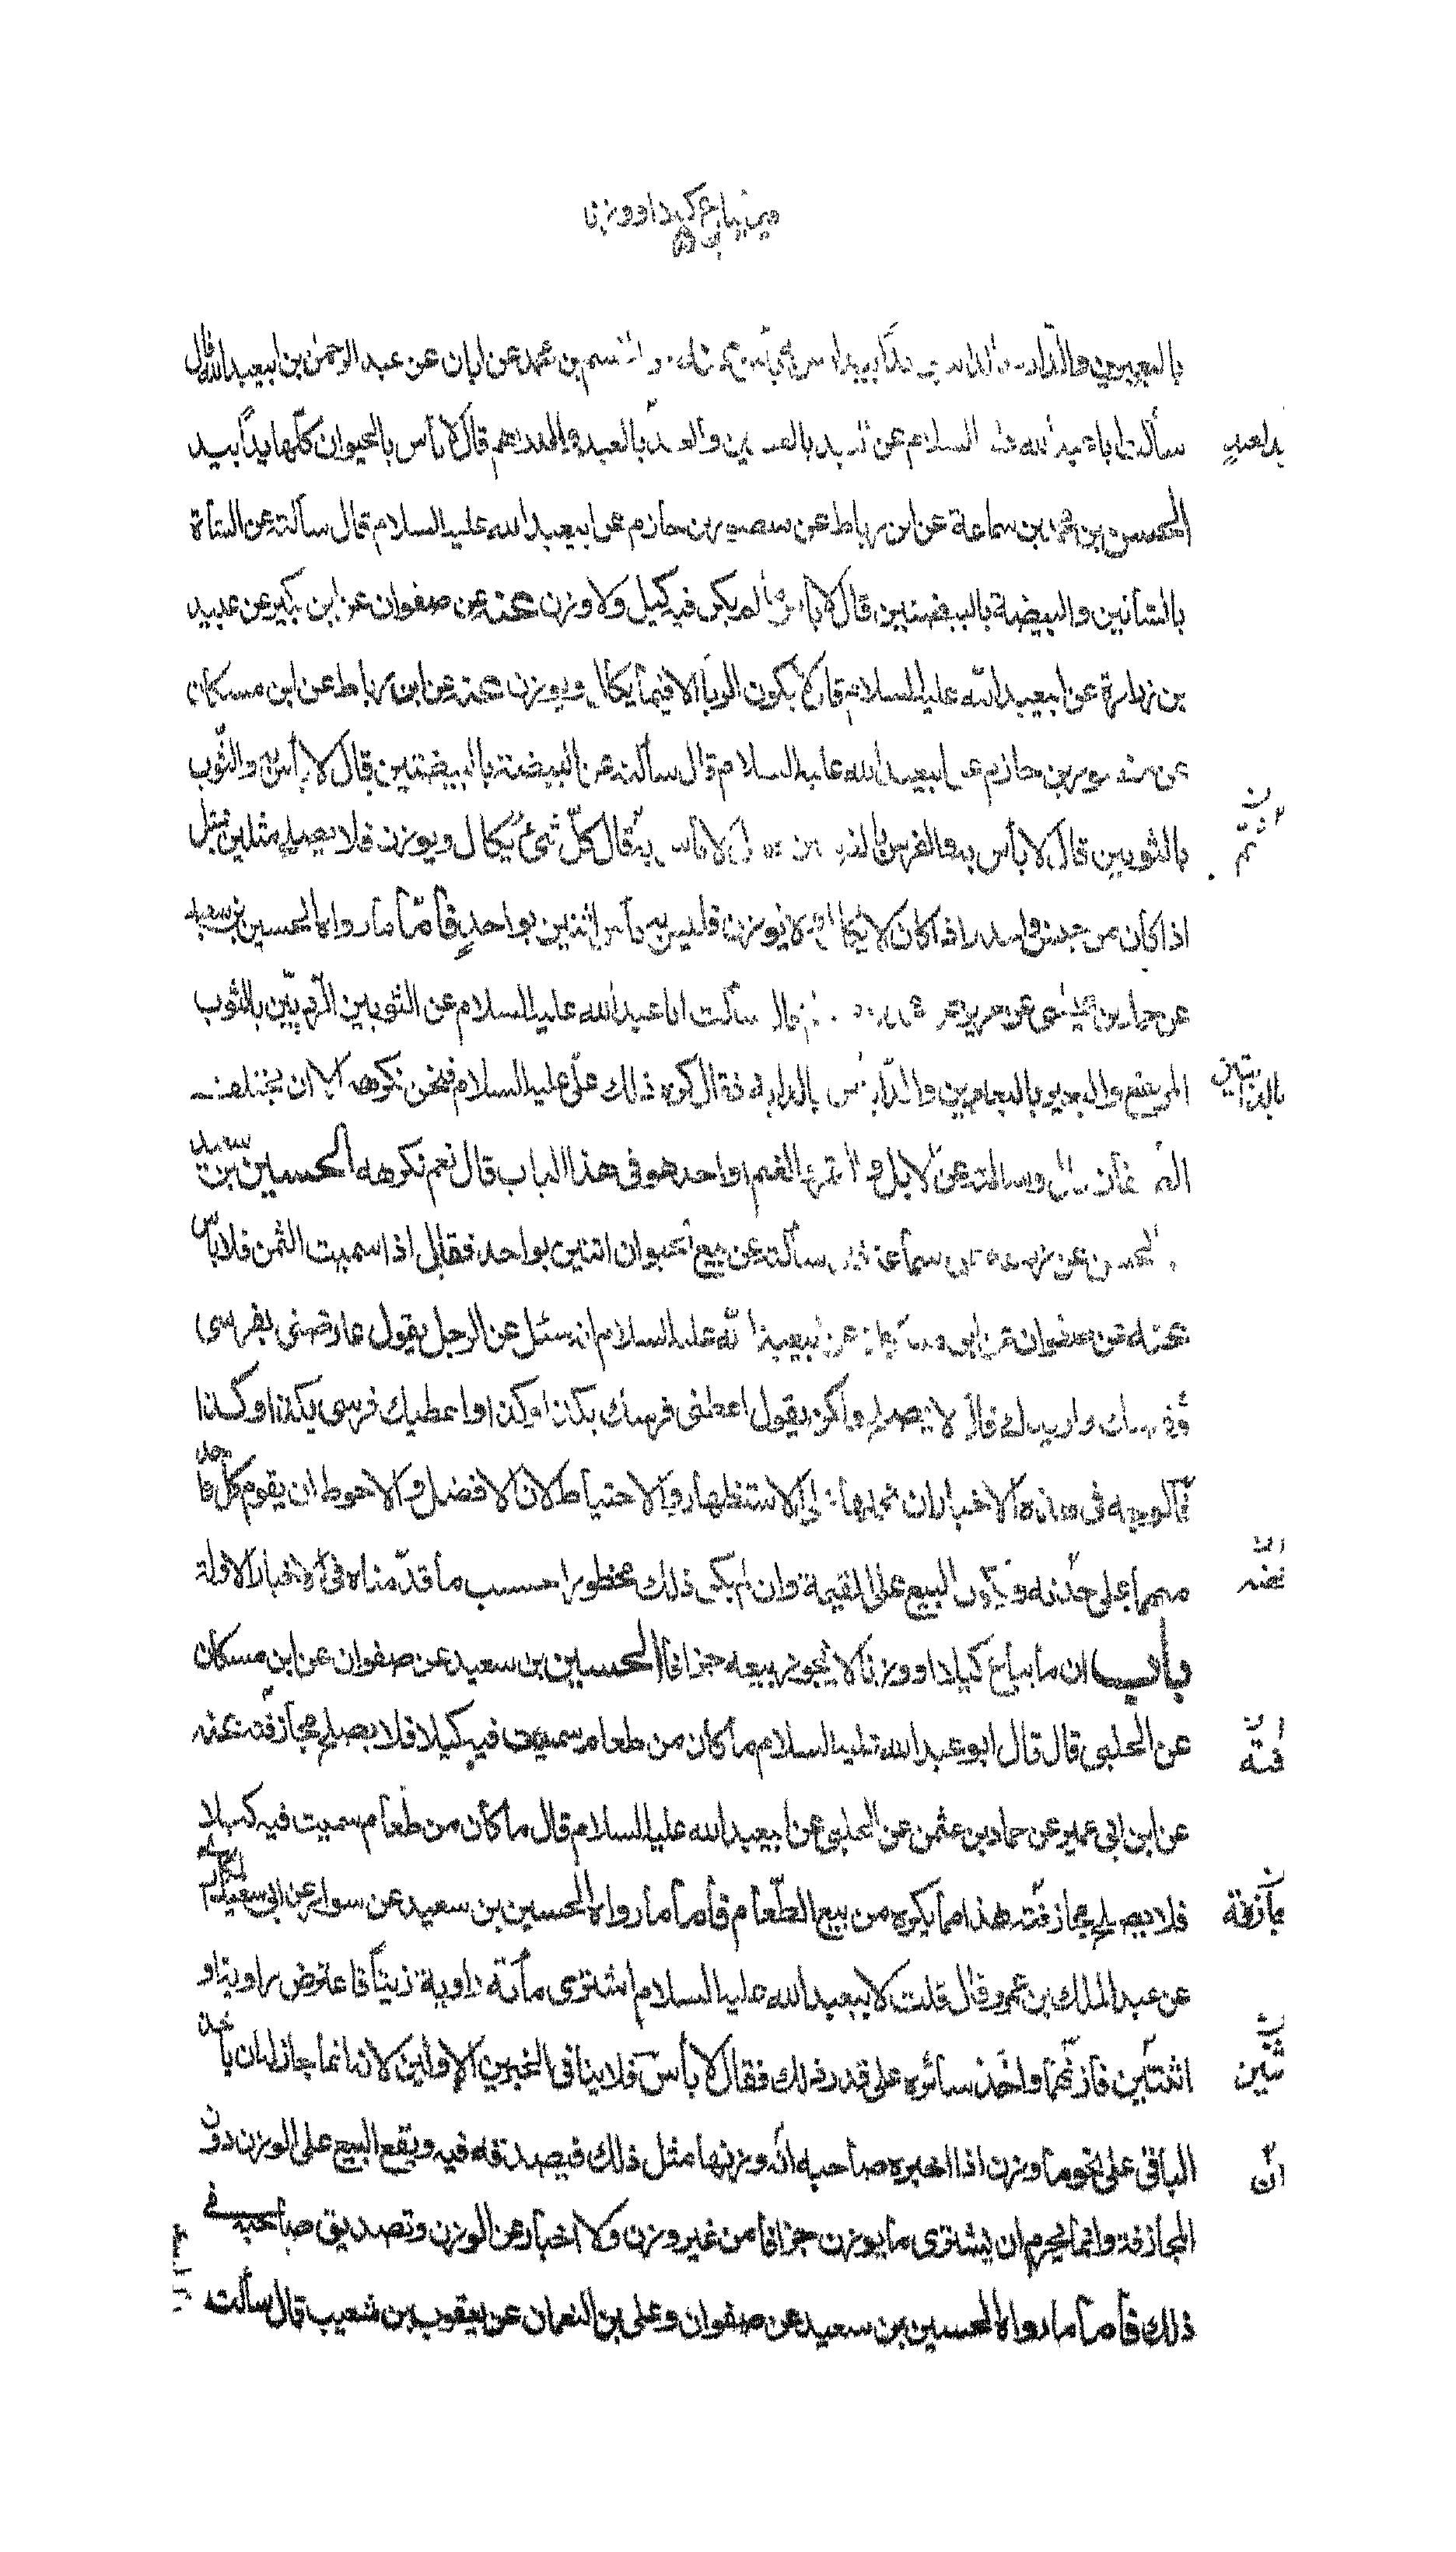 فيمن يباع كيلا او وزنا
بالبعيرين والدابة بالدابتين يدا بيد ليس به بأس عنه عن القسم بن محمد عن ابان عن عبد الرحمن بن ابيعبد الله قال
سألت ابا عبد الله عليه السلام عن العبد بالعبدين والعبد بالعبد والدراهم قال لا بأس بالحيوان كلها يدا بيد
الحسن بن محمد بن سماعة عن ابن رباط عن منصور بن حازم عن ابيعبد الله عليه السلام قال سألته عن الشاة
بالشاتين والبيضة بالبيضتين قال لا بأس ما لم يكن فيه كيل ولا وزن عنه عن صفوان عن ابن بكير عن عبيد
بن زرارة عن ابيعبد الله عليه السلام قال لا يكون الربا الا فيما يكال ويوزن عنه عن ابن رباط عن ابن مسكان
عن منصور بن حازم عن ابيعبد الله عليه السلام قال سألته عن البيضة بالبيضتين قال لا بأس به والثوب
بالثوبين قال لا بأس به والفرس بالفرسين قال لا بأس به ثم قال كل شئ يكال ويوزن فلا يصلح مثلين بمثل
اذا كان من جنس واحد فاذا كان لا يكال ولا يوزن فليس به بأس اثنين بواحد فأما ما رواه الحسين بن سعيد
عن حماد بن عيسى عن حريز عن قال سألت ابا عبد الله عليه السلام عن الثوبين الرديين بالثوب
المرتفع والبعير بالبعيرين والدابة بالدابتين فقال كره ذلك علي عليه السلام فنحن نكرهه الا ان يختلف
الصنفان قال وسألته عن الابل والبقر والغنم او احد هو في هذا الباب قال نعم نكرهه الحسين بن سعيد
الحسن عن زرعة عن سماعة قال سألته عن بيع الحيوان اثنين بواحد فقال اذا سميت الثمن فلا بأس
عنه عن صفوان عن ابن مسكان عن ابيعبد الله عليه السلام انه سئل عن الرجل يقول عارضني بفرسي
وفرسك وازيدك قال لا يصلح ولكن يقول اعطني فرسك بكذا وكذا واعطيك فرسي بكذا وكذا
فالوجه في هذه الاخبار ان نحملها على الاستظهار والاحتياط لان الافضل والاحوط ان يقوم كل واحد
منهما على حدته ويكون البيع على القيمة وان لم يكن ذلك محظورا حسب ما قدمناه في الاخبار الاولة
باب ان ما يباع كيلا او وزنا لا يجوز بيعه جزافا الحسين بن سعيد عن صفوان عن ابن مسكان
عن الحلبي قال قال ابو عبد الله عليه السلام ما كان من طعام سميت فيه كيلا فلا يصلح مجازفته عنه
عن ابن ابي عمير عن حماد بن عثمن عن الحلبي عن ابيعبد الله عليه السلام قال ما كان من طعام سميت فيه كيلا
فلا يصلح مجازفته هذا مما يكره من بيع الطعام فأما ما رواه الحسين بن سعيد عن عن ابي سعيد
عن عبد الملك بن عمرو قال قلت لابيعبد الله عليه السلام اشتري مائة راوية زيتا فاعترض راوية او
اثنتين فأتزنهما واخذ سائره على قدر ذلك فقال لا بأس فلا ينافي الخبرين الاولين لانه انما جاز له ان يأخذ
الباقي على نحو ما وزن اذا اخبره صاحبه انه وزنها مثل ذلك فيصدقه فيه ويقع البيع على الوزن دون
المجازفة وانما يحرم ان يشتري ما يوزن جزافا من غير وزن ولا اخبار عن الوزن وتصديق صاحبه في
ذلك فأما ما رواه الحسين بن سعيد عن صفوان وعلي بن النعمان عن يعقوب بن شعيب قال سألته